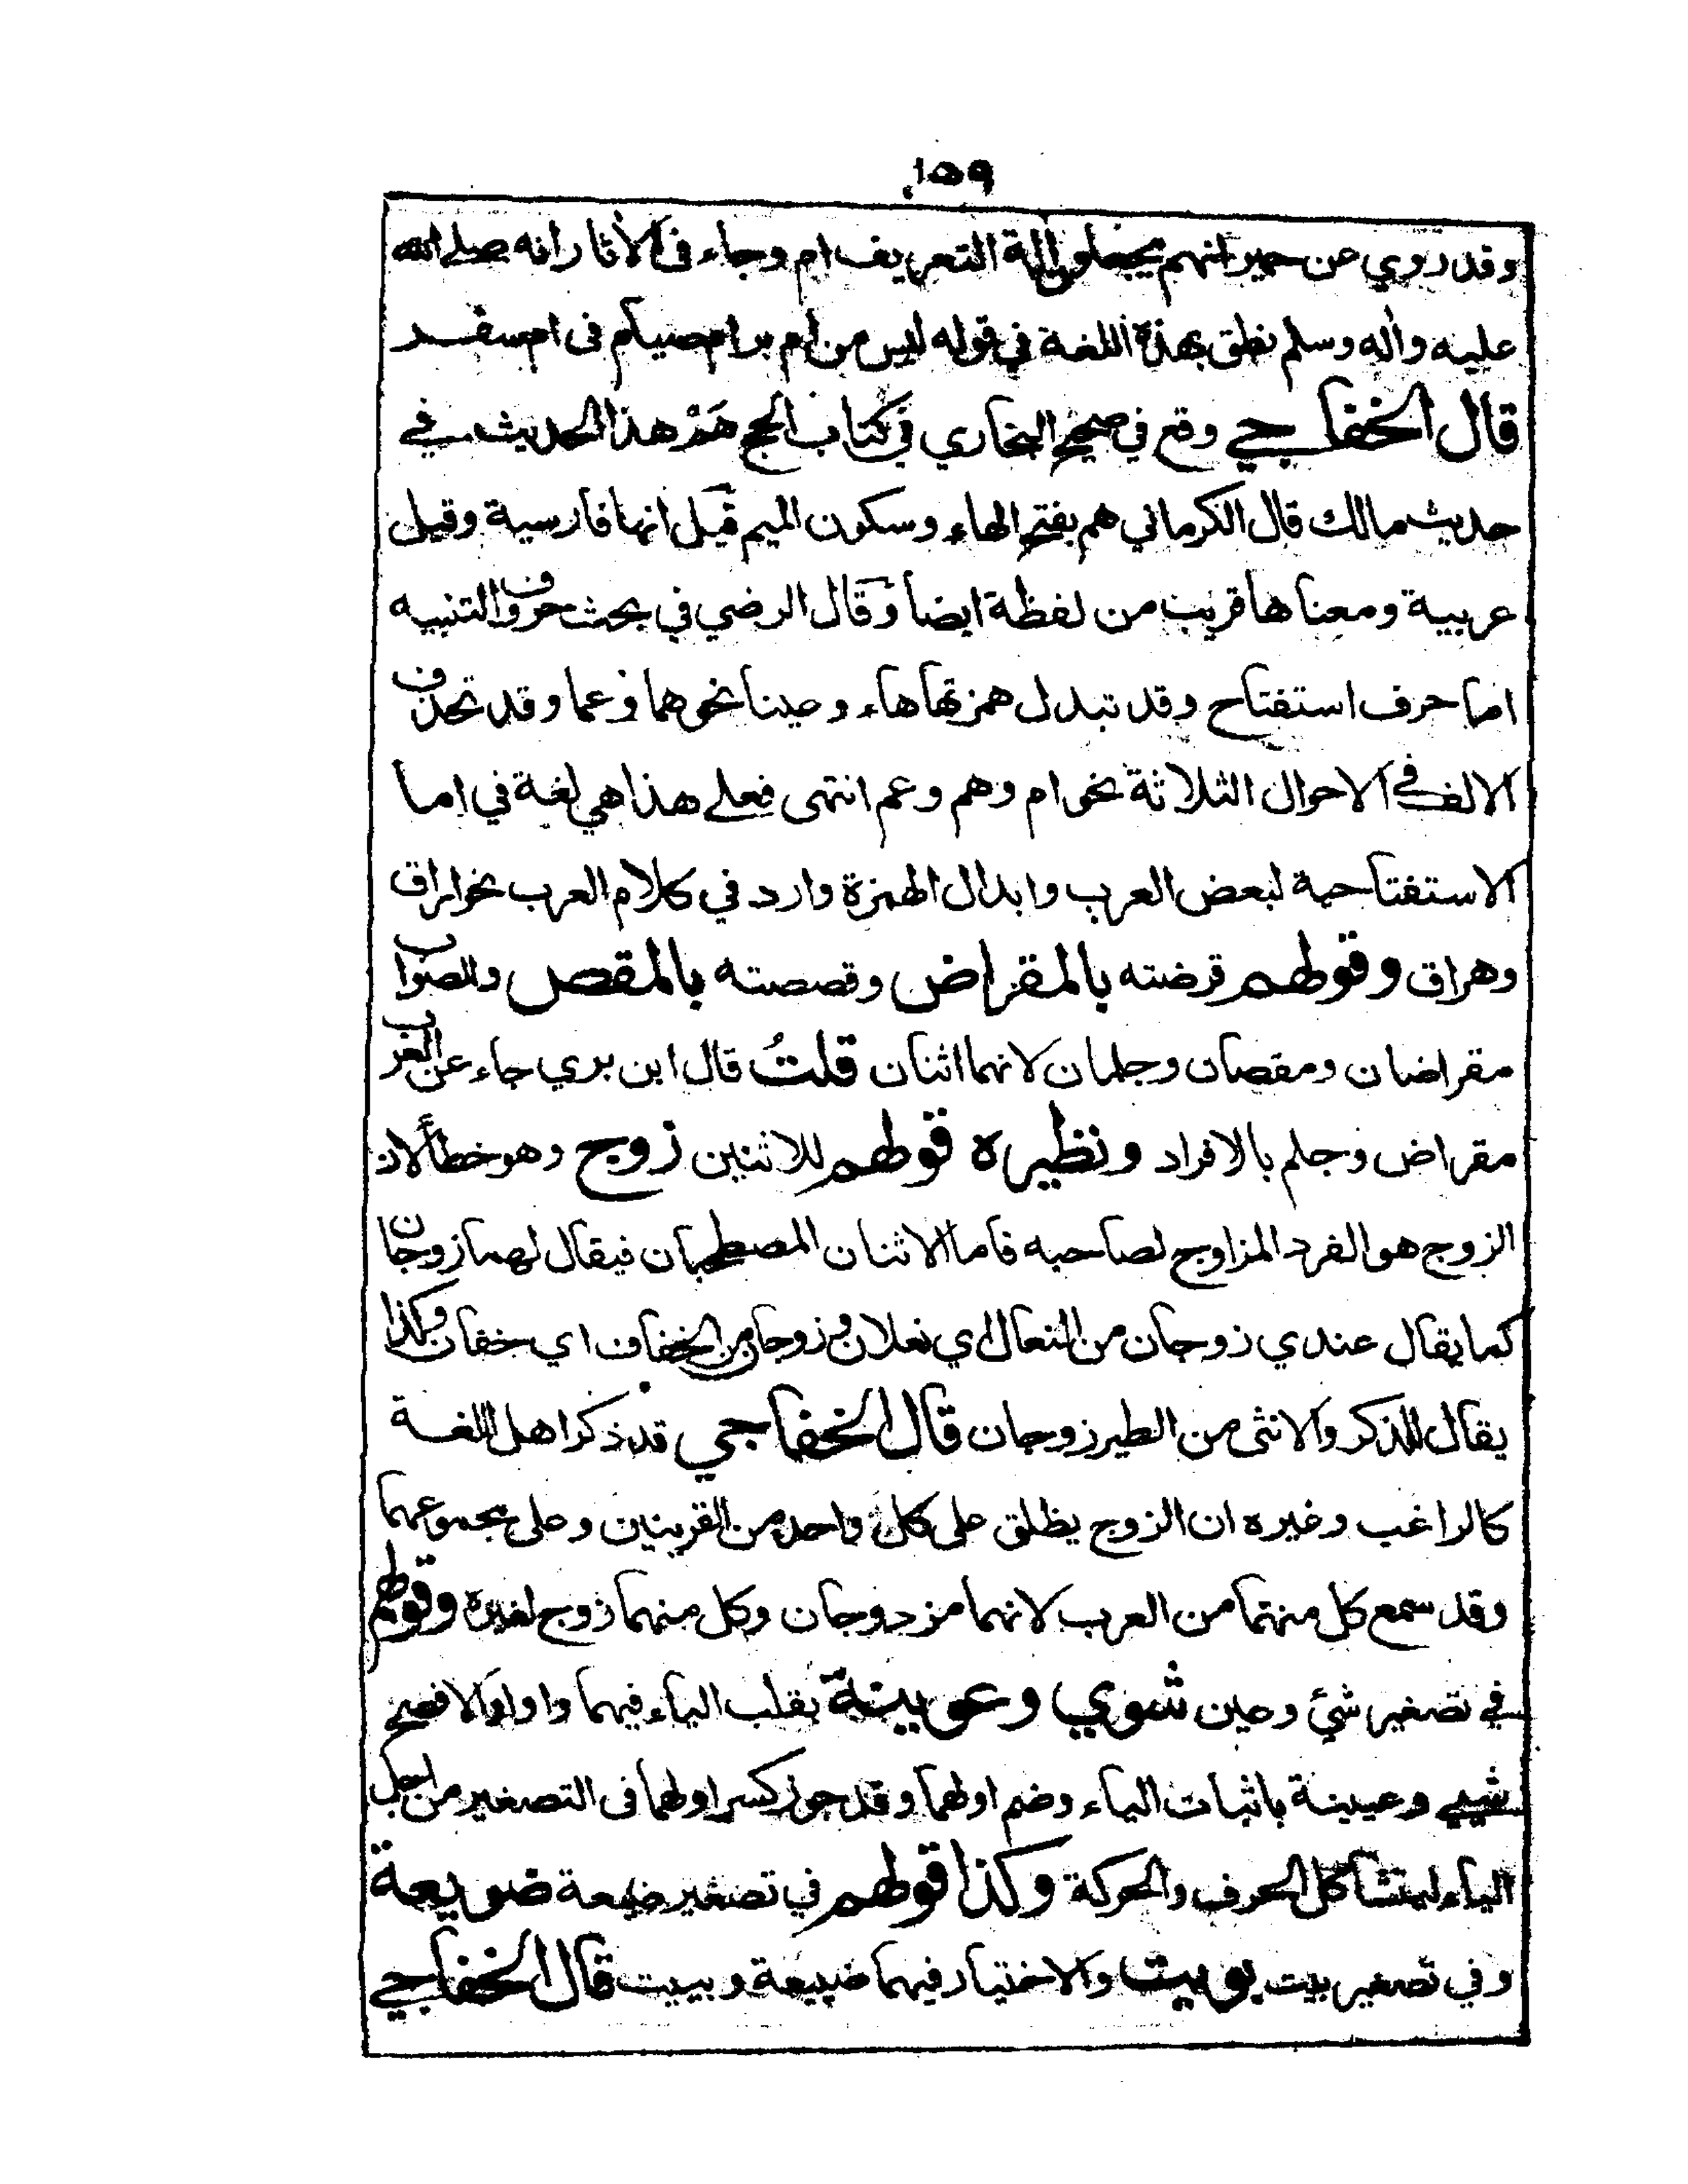 ١٥٩
وقد روي عن حمير انهم يجعلون الة التعريف ام وجاء فى الأثار انه صلى الله
عليه واله وسلم نطق بهذه اللغة في قوله ليس من ام بر امصيام فى امسفر
قال الخفاجي وقع في صحيح البخاري في كتاب الحج هَمْ هذا الحديث في
حديث مالك قال الكرماني هم بفتح الهاء وسكون الميم قيل انها فارسية وقيل
عربية ومعناها قريب من لفظة ايضا وقال الرضي في بحث حروف التنبيه
اما حرف استفتاح وقد تبدل همزتها هاء وعينا نحو هما وعما وقد تحذف
الالف في الاحوال الثلاثة نحو ام وهم وعم انتهى فعلى هذا هي لغة في اما
الاستفتاحية لبعض العرب وابدال الهمزة وارد في كلام العرب نحو اراق
وهراق وقولهم قرضته بالمقراض وقصصته بالمقص والصواب
مقراضان ومقصان وجلمان لانهما اثنان قلتُ قال ابن بري جاء عن العرب
مقراض وجلم بالافراد ونظيره قولهم للاثنين زوج وهو خطأ لان
الزوج هو الفرد المزاوج لصاحبه فاما الاثنان المصطحبان فيقال لهما زوجان
كما يقال عندي زوجان من النعال اي نعلان وزوجان من الخفاف اي خفان وكذا
يقال للذكر والانثى من الطير زوجان قال الخفاجي قد ذكر اهل اللغة
كالراغب وغيره ان الزوج يطلق على كل واحد من القرينين وعلى مجموعهما
وقد سمع كل منهما من العرب لانهما مزدوجان وكل منهما زوج لغيره وقولهم
في تصغير شئ وعين شوي وعوينة بقلب الياء فيهما واوا والافصح
شيي وعيينة باثبات الياء وضم اولهما وقد جوز كسر اولهما فى التصغير من اجل
الياء ليتشاكل الحرف والحركة وكذا قولهم في تصغير ضيعة ضويعة
وفي تصغير بيت بويت والاختيار فيهما ضييعة وبييت قال الخفاجي